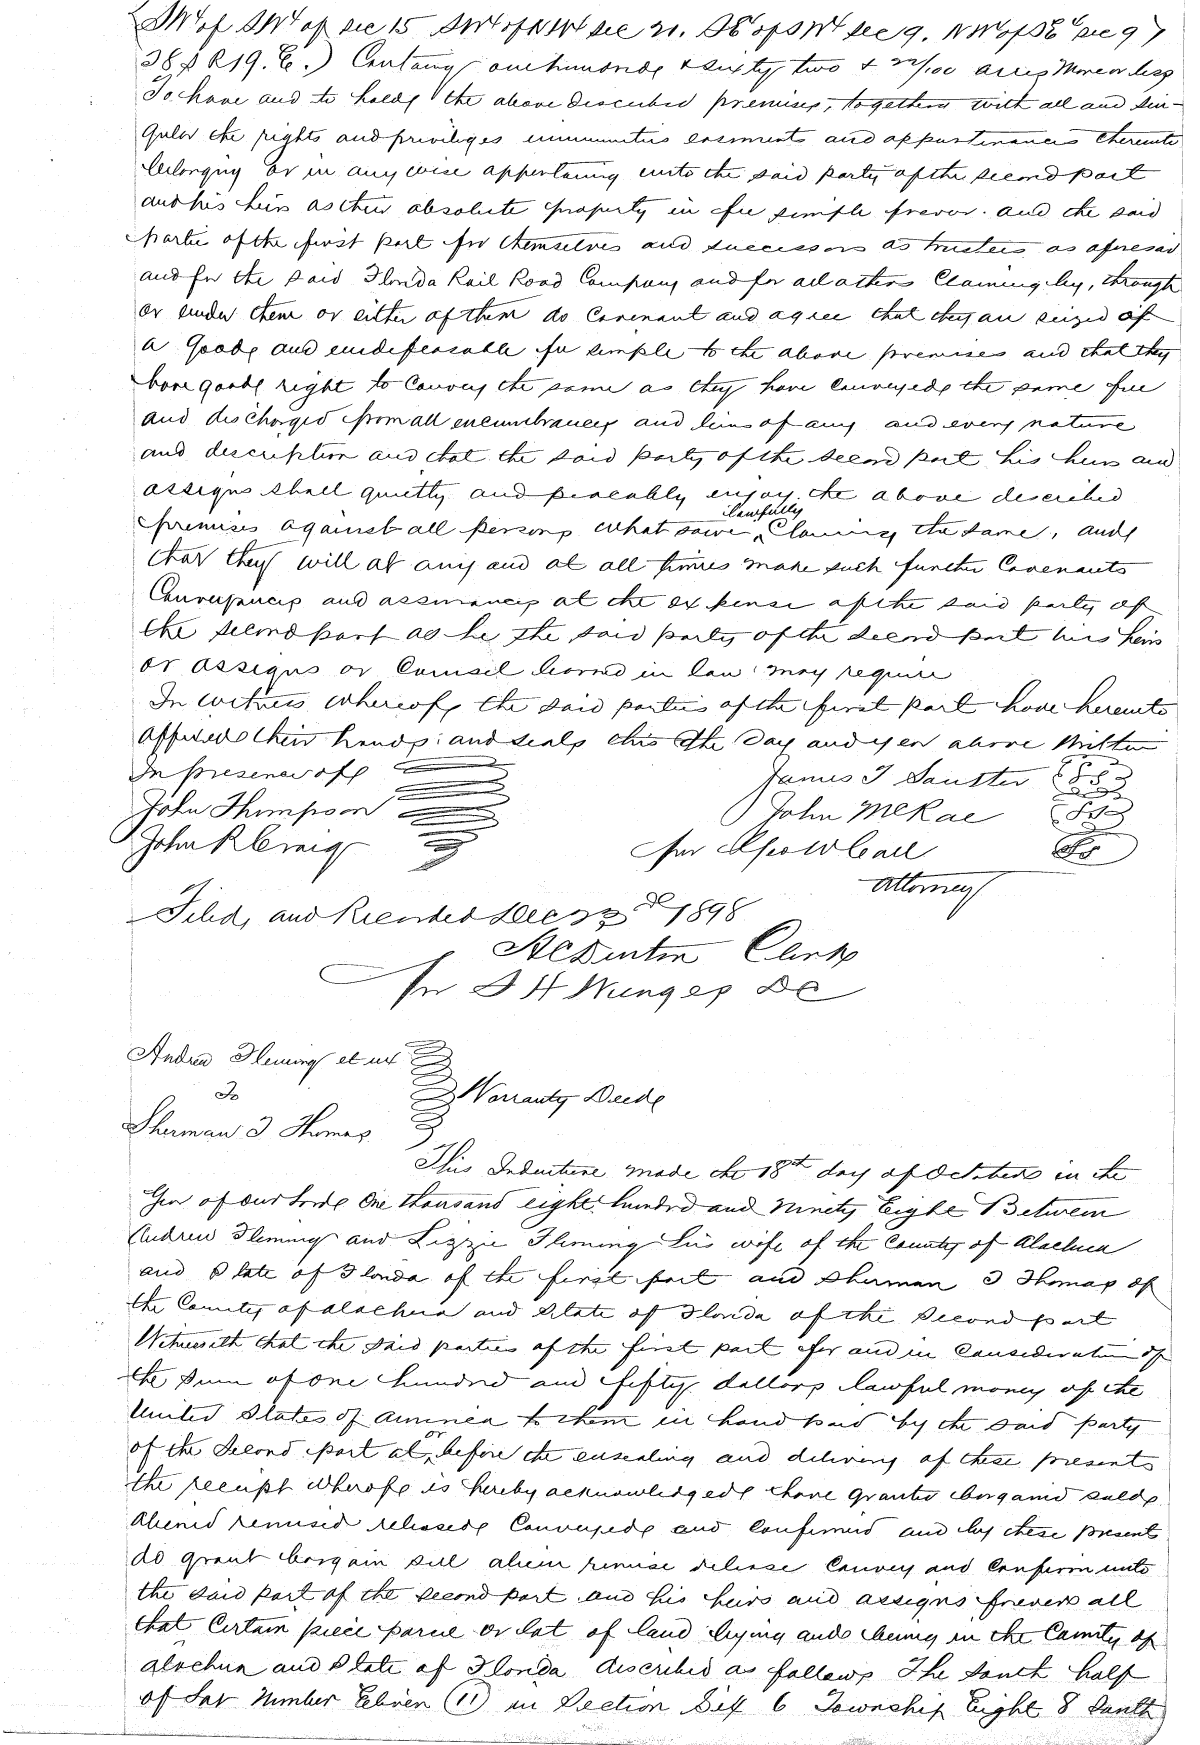 SW¼ of SW¼ of sec 15 SW¼ of NW¼ sec 21. SE¼ of SW¼ sec 9. NW¼ of SE¼ sec 9 T
8 S R 19. E.) Containg one hundred & sixty two & /100 acres More or less
To have and to hold the above described premises, together with all and sin-
gular the rights and privileges immunities easments and appurtinances thereunto
belonging or in any wise appertaining unto the said party of the second part
and his heirs as their absolute property in fee simple frever. and the said
partie of the first part for themselves and successors as trustees as aforesaid
and for the said Florida Rail Road Company and for all others Claiming by, through
or under them or either of them do Covenant and agree that they are seized of
a Good and indefeasable fee simple to the above premises and that they
have good right to Convey the same as they have conveyed the same free
and discharged from all encumbrances and liens of any and every nature
and description and that the said party of the second part his heirs and
assigns shall quietly and peacably enjoy the above described
premises against all persons what soever lawfully Claiming the same, and
that they will at any and at all times make such further Covenants
Conveyances and assurances at the expense of the said party of
the second part as he the said party of the second part his heirs
or assigns or Counsil learned in law may require
In witness whereof the said parties of the first part have hereunto
affixed their hands and seals this the day and year above Written
In presence of
James T Soutter
John Thompson
John McRae
John R Craig
Per Geo W Call
Attorney
Filed, and Recorded Dec 23d 1898
H C Denton Clerk
Per S H Wienges DC
Andrew Fleming et ux
To
Warranty Deed
Sherman T Thomas
This Indenture made the 18th day of October in the
Year of our Lord One thousand eight hundred and Ninety Eight Between
Andrew Fleming and Lizzie Fleming his wife of the County of Alachua
and State of Florida of the first part and Sherman T Thomas of
the County of Alachua and State of Florida of the Second part
Witnesseth that the said parties of the first part for and in Consideration of
the Sum of one hundred and fifty dollars lawful money of the
United States of America to them in hand paid by the said party
of the Second part at or before the ensealing and delivery of these presents
the receipt wherof is hereby acknowledged have granted bargaind sold
Aliened remised released Conveyed and confirmed and by these presents
do grant bargain sell alien remise release Convey and Confirm unto
the said part of the second part and his heirs and assigns frever all
that Certain piece parcel or lot of land lying and being in the County of
Alachua and State of Florida described as follows The South half
of Lot Number Eleven (11) in Section Six 6 Township Eight 8 South